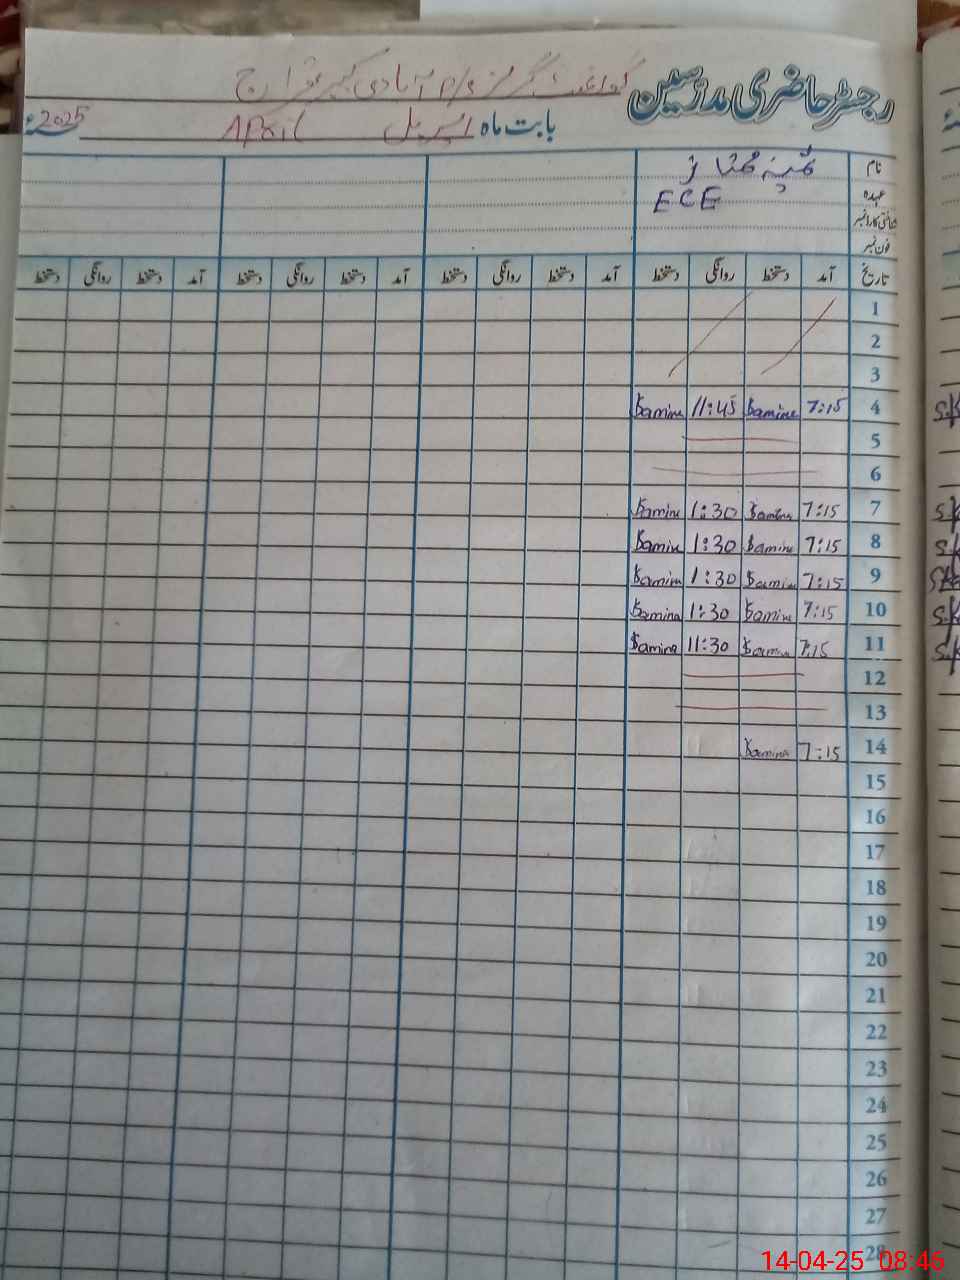 رجسٹر حاضری مدرسین گورنمنٹ گرلز p/s آبادی
بابت ماہ اپریل April 2025
نام ثمینہ مختار
عہدہ ECE
شناختی کارڈ نمبر
فون نمبر
تاریخ آمد دستخط روانگی دستخط آمد دستخط روانگی دستخط آمد دستخط روانگی دستخط آمد دستخط روانگی دستخط
1
2
3
4 7:15 Samina 11:45 Samina
5
6
7 7:15 Samina 1:30 Samina
8 7:15 Samina 1:30 Samina
9 7:15 Samina 1:30 Samina
10 7:15 Samina 1:30 Samina
11 7:15 Samina 11:30 Samina
12
13
14 7:15 Samina
15
16
17
18
19
20
21
22
23
24
25
26
27
28
14-04-25 08:46